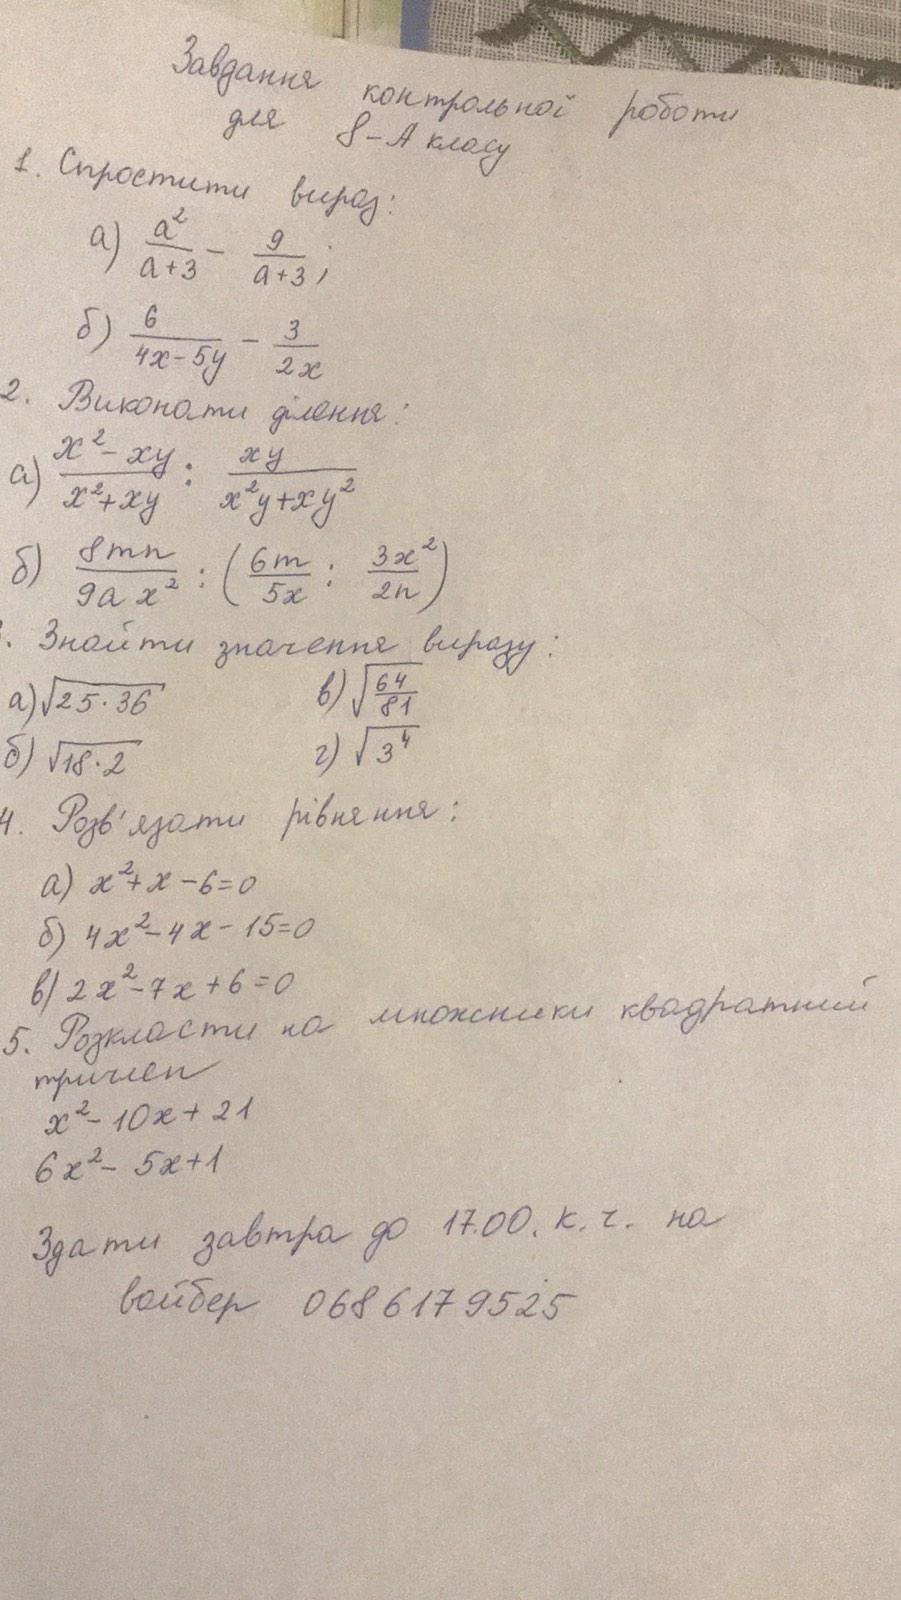 Завдання контрольної роботи
для 8-А класу
1. Спростити вираз:
а) a²/(a+3) - 9/(a+3);
б) 6/(4x-5y) - 3/(2x)
2. Виконати ділення:
а) (x²-xy)/(x²+xy) : xy/(x²y+xy²)
б) 8mn/(9a x²) : (6m/(5x) : 3x²/(2n))
. Знайти значення виразу:
а) √(25·36) в) √(64/81)
б) √(18·2) г) √(3⁴)
4. Розв'язати рівняння:
а) x²+x-6=0
б) 4x²-4x-15=0
в) 2x²-7x+6=0
5. Розкласти на множники квадратний
тричлен
x²-10x+21
6x²-5x+1
Здати завтра до 17.00. к.ч. на
вайбер 0686179525